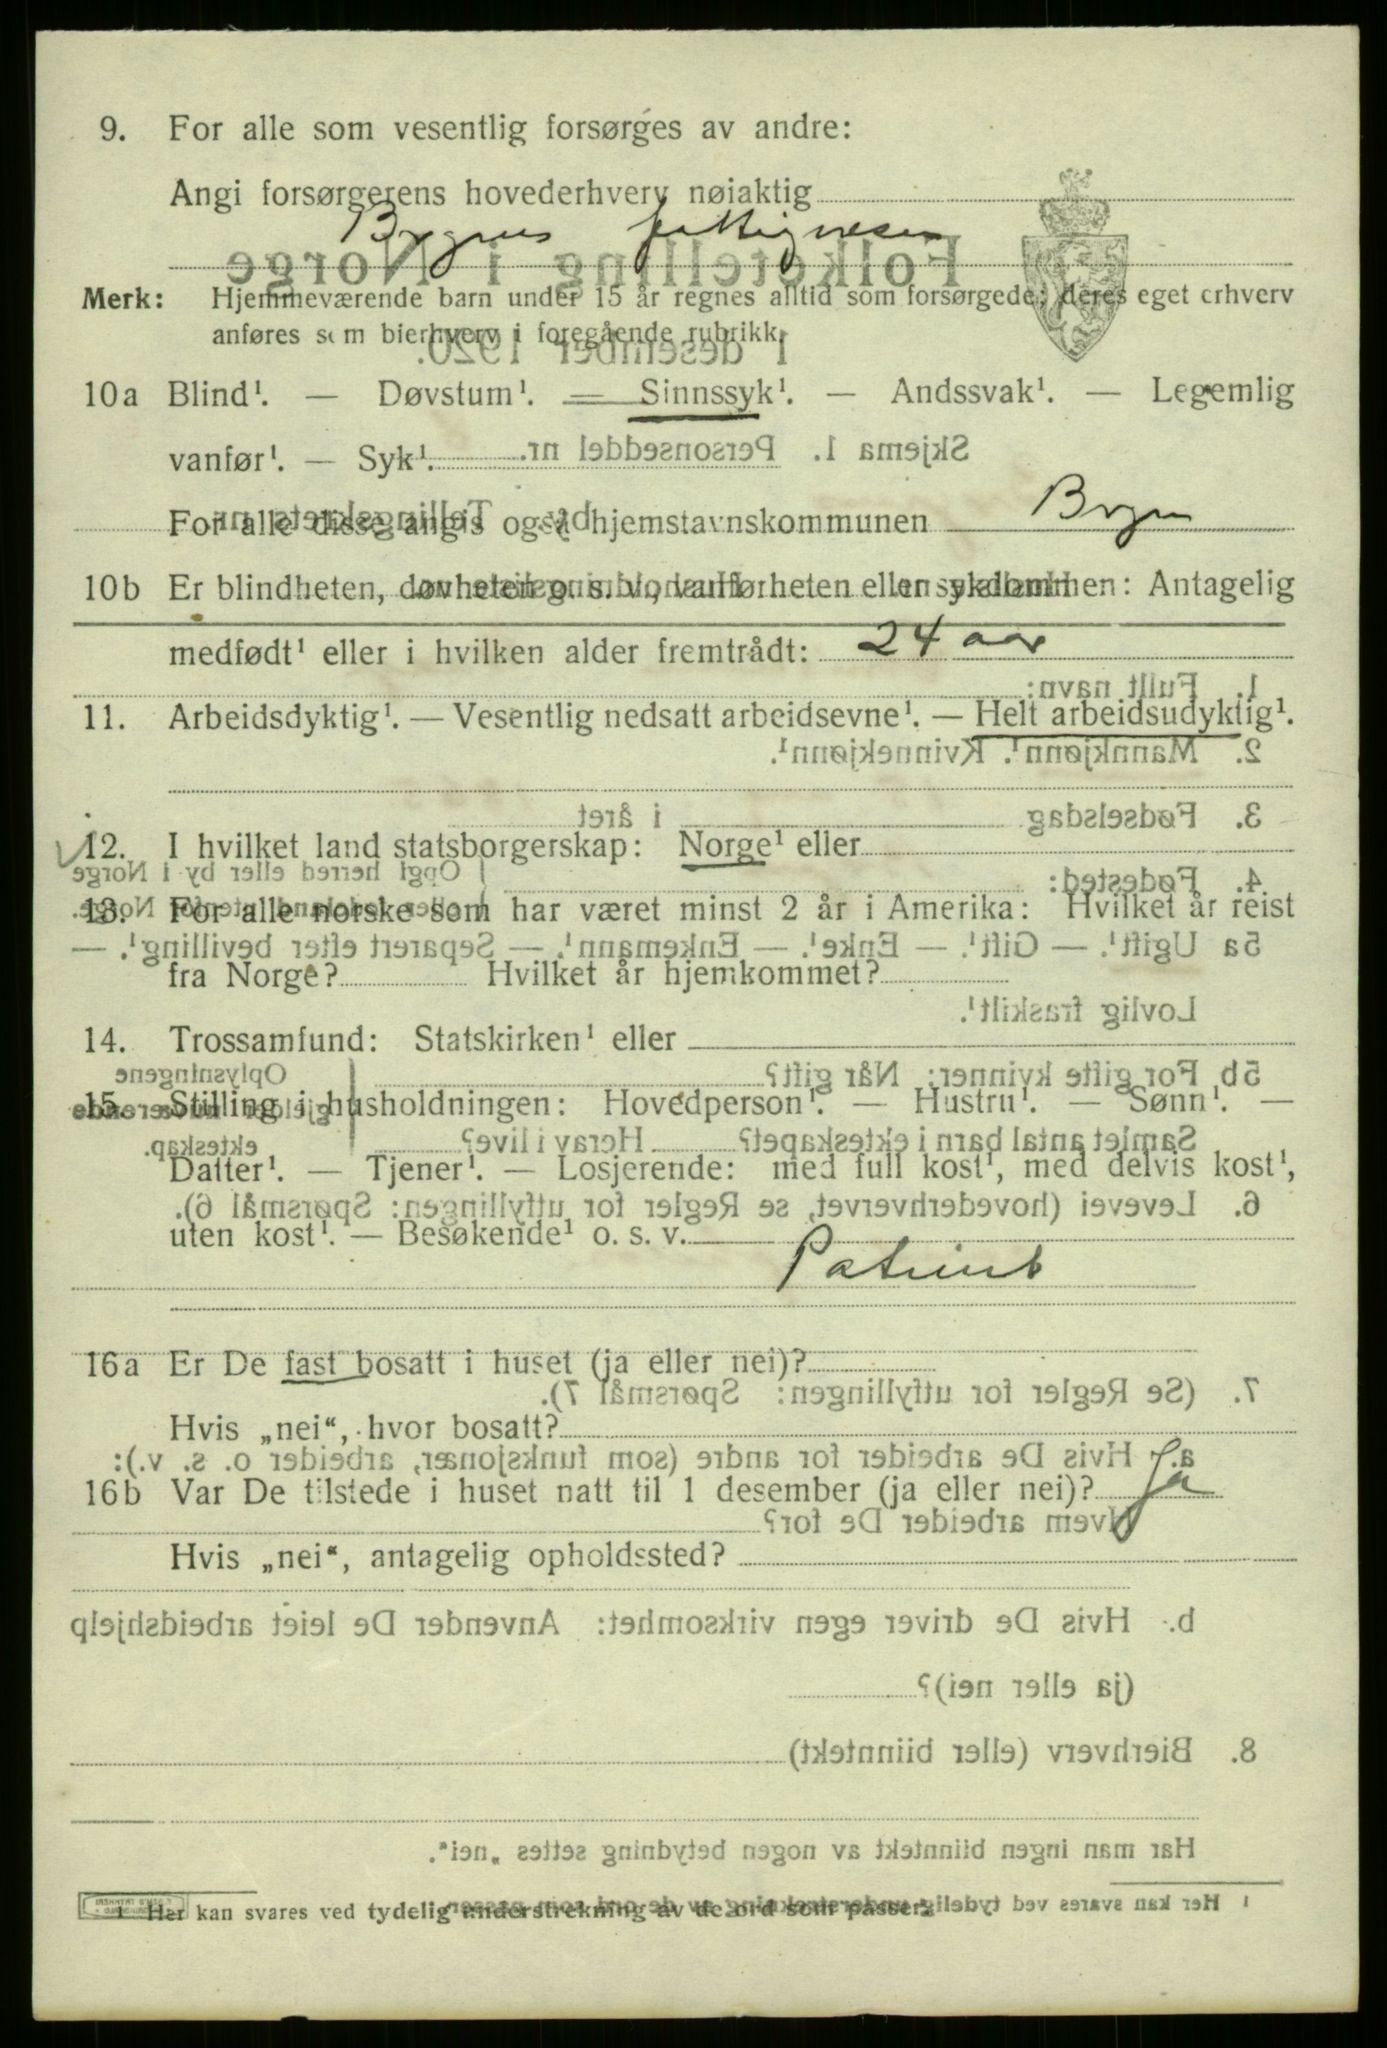 9. For alle som vesentlig forsørges av andre:
Angi forsørgerens hovederhverv nøiaktig
fattigvesen
Merk: Hjemmeværende barn under 15 år regnes alltid som forsørgede; deres eget erhverv
anføres som bierhverv i foregående rubrikk.
10a Blind¹. — Døvstum¹. — Sinnssyk¹. — Andssvak¹. — Legemlig
vanfør¹. — Syk¹.
For alle disse angis også hjemstavnskommunen
10b Er blindheten, døvheten o. s. v., vanførheten eller sykdommen: Antagelig
medfødt¹ eller i hvilken alder fremtrådt: 24 aar
11. Arbeidsdyktig¹. — Vesentlig nedsatt arbeidsevne¹. — Helt arbeidsudyktig¹.
12. I hvilket land statsborgerskap: Norge¹ eller
13. For alle norske som har været minst 2 år i Amerika: Hvilket år reist
fra Norge? Hvilket år hjemkommet?
14. Trossamfund: Statskirken¹ eller
15. Stilling i husholdningen: Hovedperson¹. — Hustru¹. — Sønn¹. —
Datter¹. — Tjener¹. — Losjerende: med full kost¹, med delvis kost¹,
uten kost¹. — Besøkende¹ o. s. v.
Patient
16a Er De fast bosatt i huset (ja eller nei)?
Hvis „nei“, hvor bosatt?
16b Var De tilstede i huset natt til 1 desember (ja eller nei)? Ja
Hvis „nei“, antagelig opholdssted?
¹ Her kan svares ved tydelig understrekning av de ord som passer.